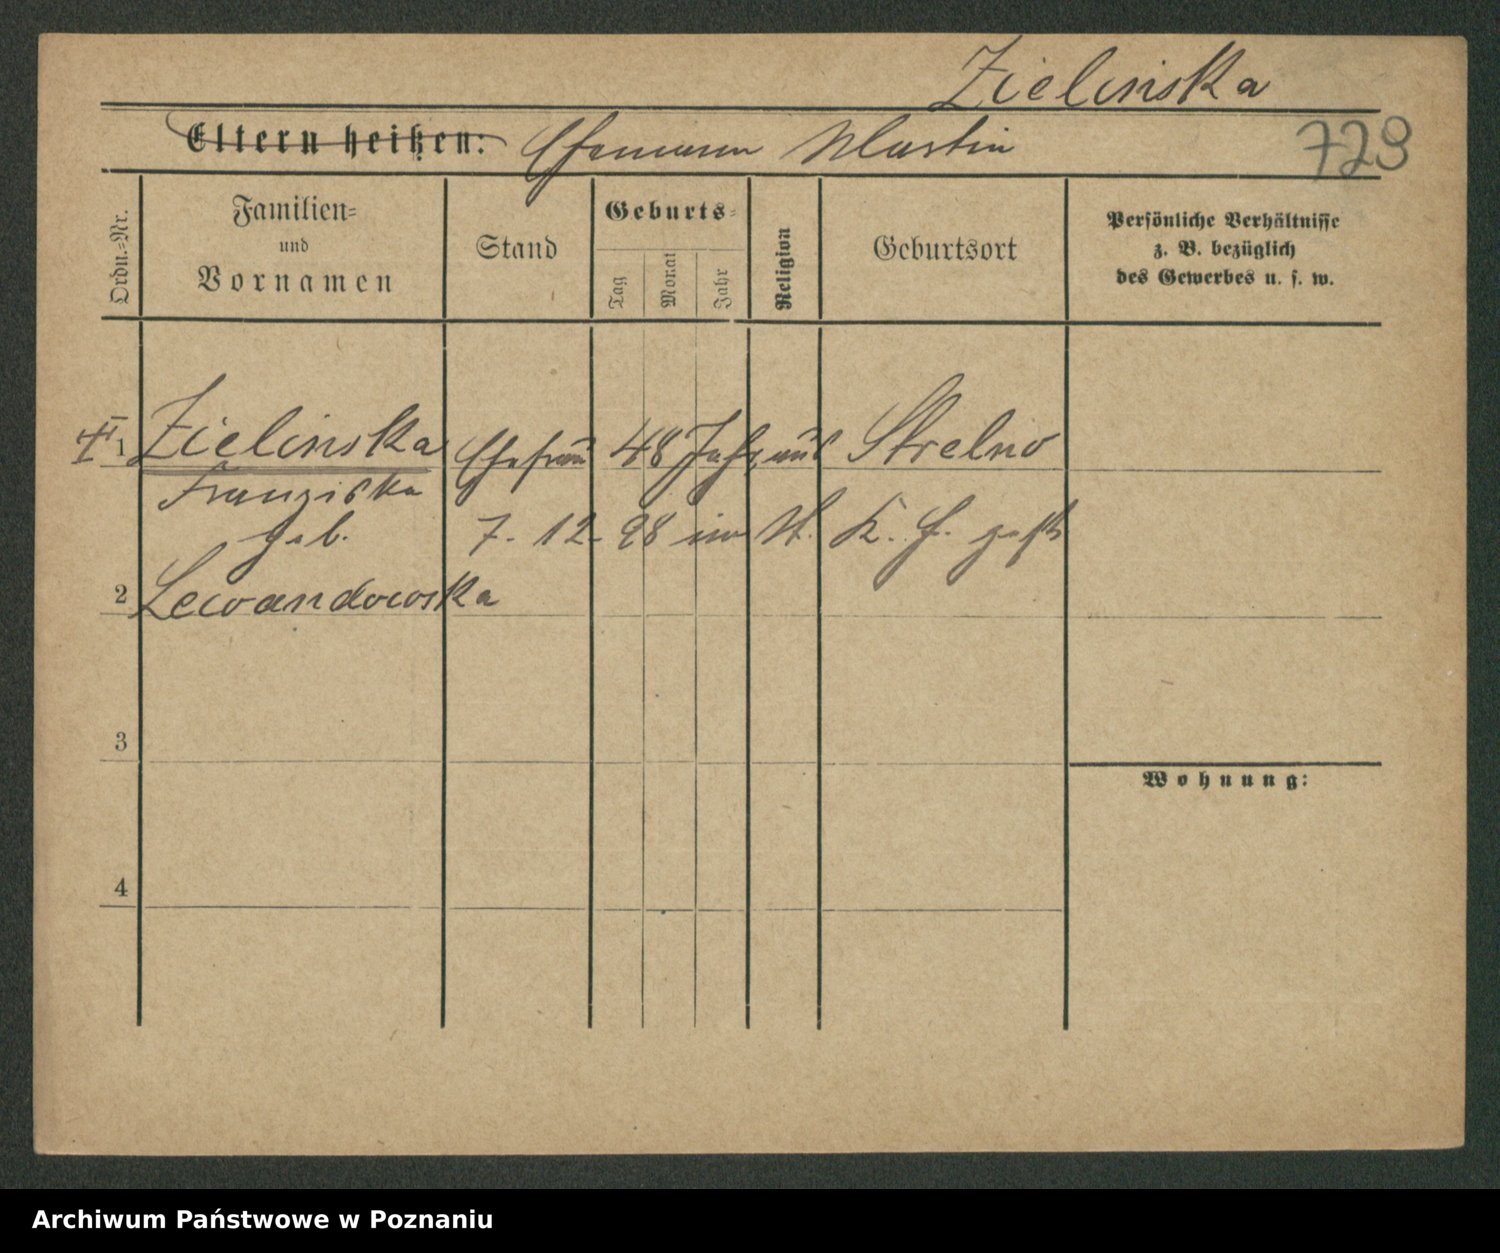 Zielinska
Eltern heißen: Ehemann Martin
729
Ordn.-Nr.
Familien-
und
Vornamen
Stand
Geburts-
Tag
Monat
Jahr
Religion
Geburtsort
Persönliche Verhältnisse
z. B. bezüglich
des Gewerbes u. s. w.
1 Zielinska Ehefrau 48 Jahr aus Strelno
Franziska
geb. 7. 12. 98 im St. K. H. gest.
2 Lewandowska
3
Wohnung:
4
Archiwum Państwowe w Poznaniu